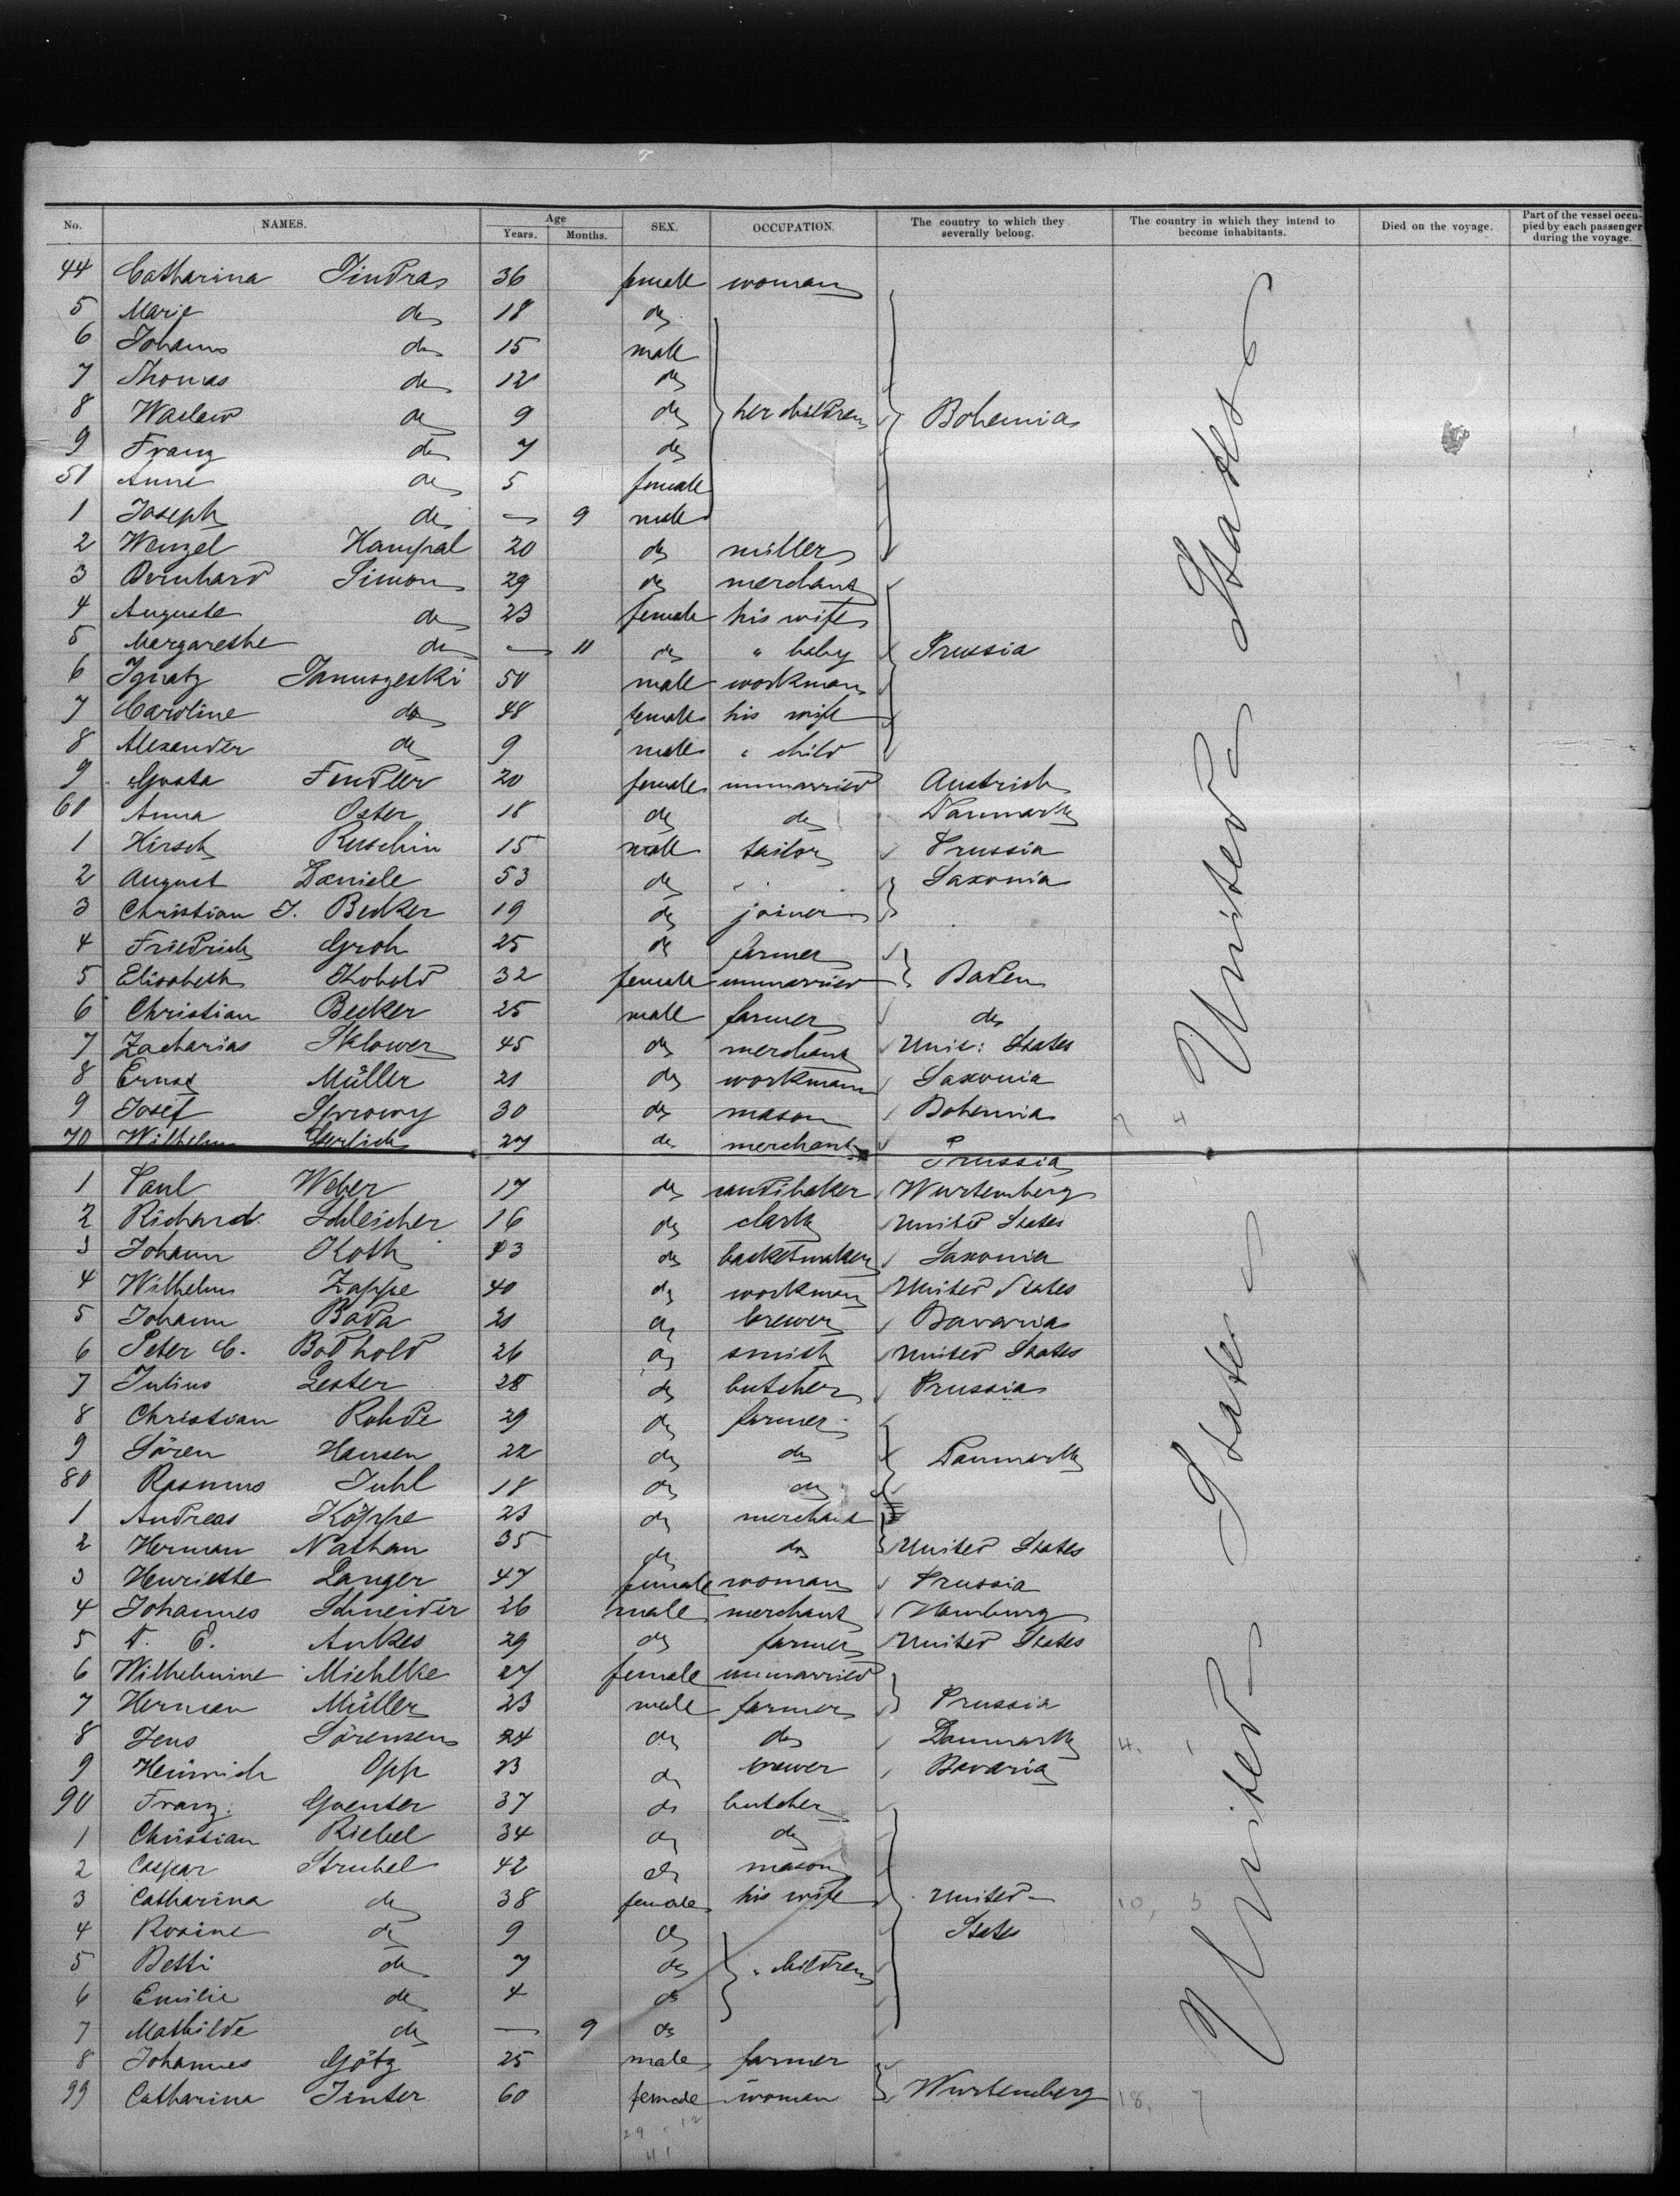 No. NAMES. Age Years. Months. SEX. OCCUPATION. The country to which they severally belong. The country in which they intend to become inhabitants. Died on the voyage. Part of the vessel occupied by each passenger during the voyage.
44 Catharina Jindra 36 female woman
5 Marie do 18 do
6 Johann do 15 male
7 Thomas do 12 do
8 Waslaw do 9 do her children Bohemia
9 Franz do 7 do
50 Anne do 5 female
1 Joseph do — 9 male
2 Wenzel Hampal 20 do miller
3 Bernhard Simon 29 do merchant
4 Auguste do 23 female his wife
5 Margarethe do — 11 do " baby Prussia
6 Ignatz Januszeski 50 male workman
7 Caroline do 48 female his wife
8 Alexander do 9 male " child
9 Fendler 20 female unmarried Austrich
60 Anna Oster 18 do do Danmark
1 Hirsch Ruschin 15 male tailor Prussia
2 August Daniele 53 do " Saxonia
3 Christian J. Becker 19 do joiner
4 Friedrich Groh 25 do farmer
5 Elisabeth Kobold 32 female unmarried Baden
6 Christian Becker 25 male farmer do
7 Zacharias Sklower 45 do merchant Unit: States
8 Ernst Müller 21 do workman Saxonia
9 Josef 30 do mason Bohemia 7 4
70 Wilhelm Gerlich 27 do merchant Prussia
1 Paul Weber 17 do Wurtemberg
2 Richard Schleicher 16 do clark United States
3 Johann Koth 43 do basketmaker Saxonia
4 Wilhelm Zappe 40 do workman United States
5 Johann Bada 21 do brewer Bavaria
6 Peter C. Bodhold 26 do smith United States
7 Julius Lester 28 do butcher Prussia
8 Christian Rohde 29 do farmer
9 Sören Hansen 22 do do Danmark
80 Rasmus Juhl 18 do do
1 Andreas Köppe 23 do merchant
2 Herman Nathan 35 do do United States
3 Henriette Langer 47 female woman Prussia
4 Johannes Schneider 26 male merchant Hamburg
5 Ankes 29 do farmer United States
6 Wilhelmine Miehlke 27 female unmarried
7 Herman Müller 23 male farmer Prussia
8 Jens Sörensen 24 do do Danmark 4. 1
9 Heinrich Opp 23 do brewer Bavaria
90 Franz Guenter 37 do butcher
1 Christian Riebel 34 do do
2 Caspar Strubel 42 do mason
3 Catharina do 38 female his wife United 10, 3
4 Rosine do 9 do States
5 Betti do 7 do " children
6 Emilie do 4 do
7 Mathilde do — 9 do
8 Johannes Götz 25 male farmer
99 Catharina Jenter 60 female woman Wurtemberg 18, 7
29 - 12
41
United States
United States